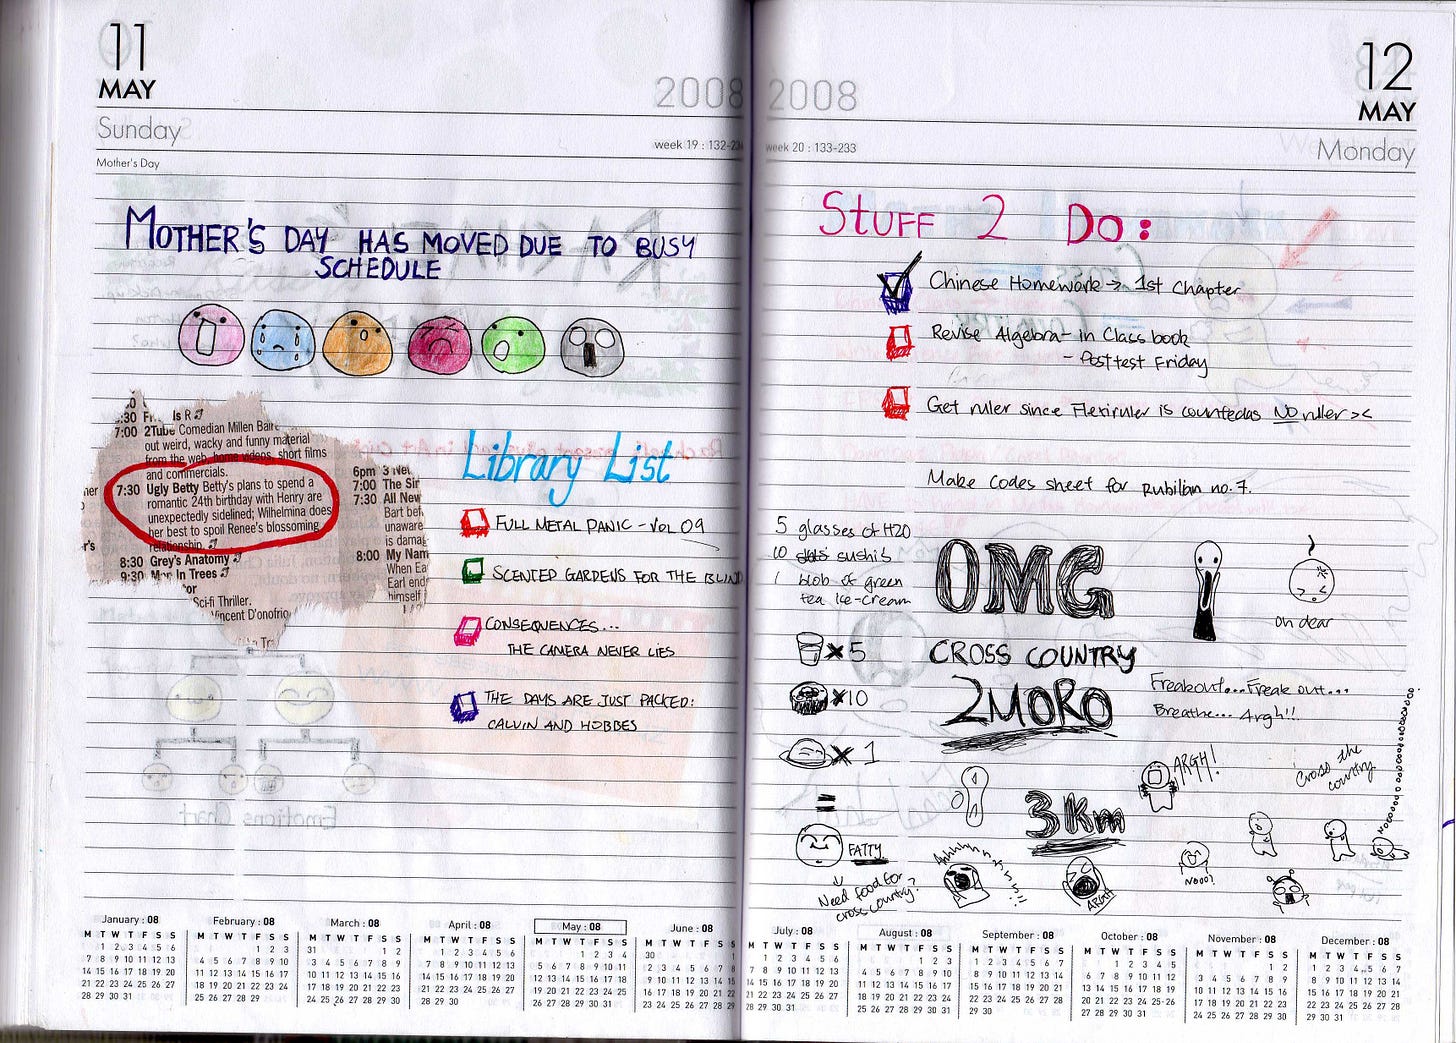 11
MAY
Sunday
Mother's Day
2008
week 19 : 132-234
MOTHER'S DAY HAS MOVED DUE TO BUSY
SCHEDULE
:30 Is R
7:00 2Tube Comedian Millen Baire
out weird, wacky and funny material
from the web, home videos, short films
and commercials.
7:30 Ugly Betty Betty's plans to spend a
romantic 24th birthday with Henry are
unexpectedly sidelined; Wilhelmina does
her best to spoil Renee's blossoming
relationship.
8:30 Grey's Anatomy
9:30 In Trees
Sci-fi Thriller.
Vincent D'onofrio
6pm 3
7:00 The Sir
7:30 All New
Bart bef
unaware
is damag
8:00 My Nam
When Ea
Earl end
himself
Library List
FULL METAL PANIC - VOL 09
SCENTED GARDENS FOR THE BLIND
CONSEQUENCES...
THE CAMERA NEVER LIES
THE DAYS ARE JUST PACKED:
CALVIN AND HOBBES
Emotions Chart
12
MAY
Monday
2008
week 20 : 133-233
STUFF 2 DO:
Chinese Homework → 1st Chapter
Revise Algebra - in Class book
- Post test Friday
Get ruler since Flexiruler is counted as NO ruler ><
Make codes sheet for Rubilian no. 7.
5 glasses of H2O
10 sushi's
1 blob of green
tea ice-cream
x 5
x10
x 1
=
FATTY
Need food for
cross country?
OMG
CROSS COUNTRY
2MORO
3Km
oh dear
Freakout... Freak out...
Breathe... Argh!!
ARGH!
Cross the
country
Nooo!
ARGH
January : 08
M T W T F S S
1 2 3 4 5 6
7 8 9 10 11 12 13
14 15 16 17 18 19 20
21 22 23 24 25 26 27
28 29 30 31
February : 08
M T W T F S S
1 2 3
4 5 6 7 8 9 10
11 12 13 14 15 16 17
18 19 20 21 22 23 24
25 26 27 28 29
March : 08
M T W T F S S
31 1 2
3 4 5 6 7 8 9
10 11 12 13 14 15 16
17 18 19 20 21 22 23
24 25 26 27 28 29 30
April : 08
M T W T F S S
1 2 3 4 5 6
7 8 9 10 11 12 13
14 15 16 17 18 19 20
21 22 23 24 25 26 27
28 29 30
May : 08
M T W T F S S
1 2 3 4
5 6 7 8 9 10 11
12 13 14 15 16 17 18
19 20 21 22 23 24 25
26 27 28 29 30 31
June : 08
M T W T F S S
30 1
2 3 4 5 6 7 8
9 10 11 12 13 14 15
16 17 18 19 20 21 22
23 24 25 26 27 28 29
July : 08
M T W T F S S
1 2 3 4 5 6
7 8 9 10 11 12 13
14 15 16 17 18 19 20
21 22 23 24 25 26 27
28 29 30 31
August : 08
M T W T F S S
1 2 3
4 5 6 7 8 9 10
11 12 13 14 15 16 17
18 19 20 21 22 23 24
25 26 27 28 29 30 31
September : 08
M T W T F S S
1 2 3 4 5 6 7
8 9 10 11 12 13 14
15 16 17 18 19 20 21
22 23 24 25 26 27 28
29 30
October : 08
M T W T F S S
1 2 3 4 5
6 7 8 9 10 11 12
13 14 15 16 17 18 19
20 21 22 23 24 25 26
27 28 29 30 31
November : 08
M T W T F S S
1 2
3 4 5 6 7 8 9
10 11 12 13 14 15 16
17 18 19 20 21 22 23
24 25 26 27 28 29 30
December : 08
M T W T F S S
1 2 3 4 5 6 7
8 9 10 11 12 13 14
15 16 17 18 19 20 21
22 23 24 25 26 27 28
29 30 31